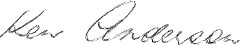 Ken Anderson